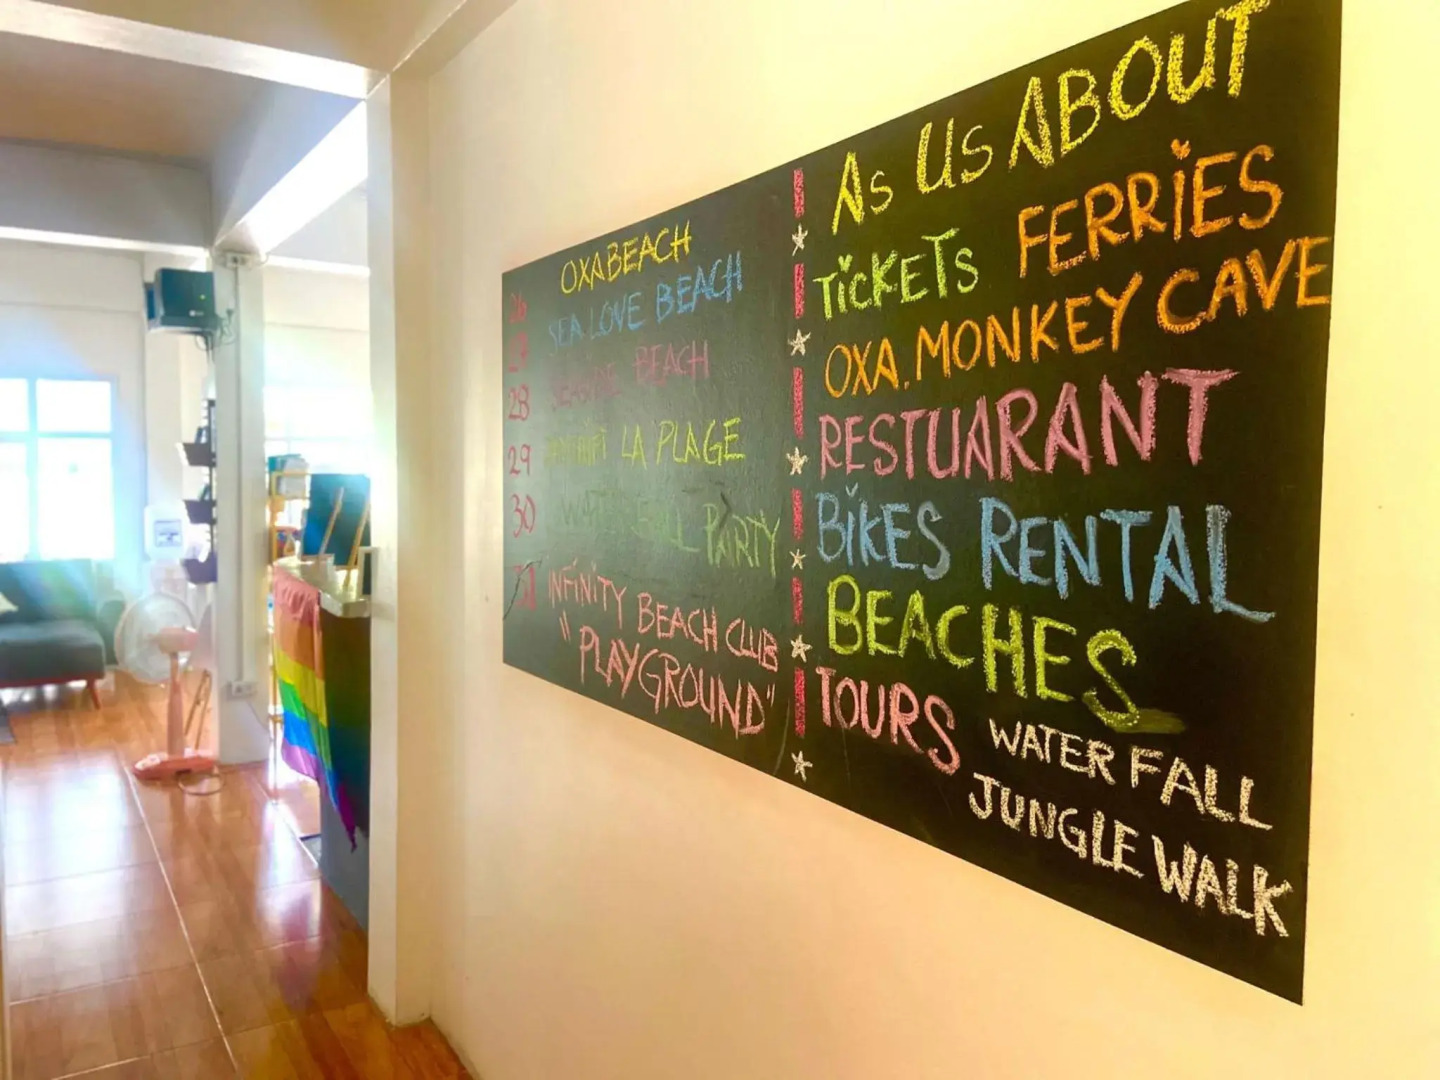 OXABEACH
26 SEA LOVE BEACH
BEACH
28
29 LA PLAGE
30 PARTY
INFINITY BEACH CLUB
"PLAYGROUND"
As Us ABOUT
TiCKETS FERRiES
OXA.MONKEY CAVE
RESTUARANT
BiKES RENTAL
BEACHES
TOURS WATER FALL
JUNGLE WALK